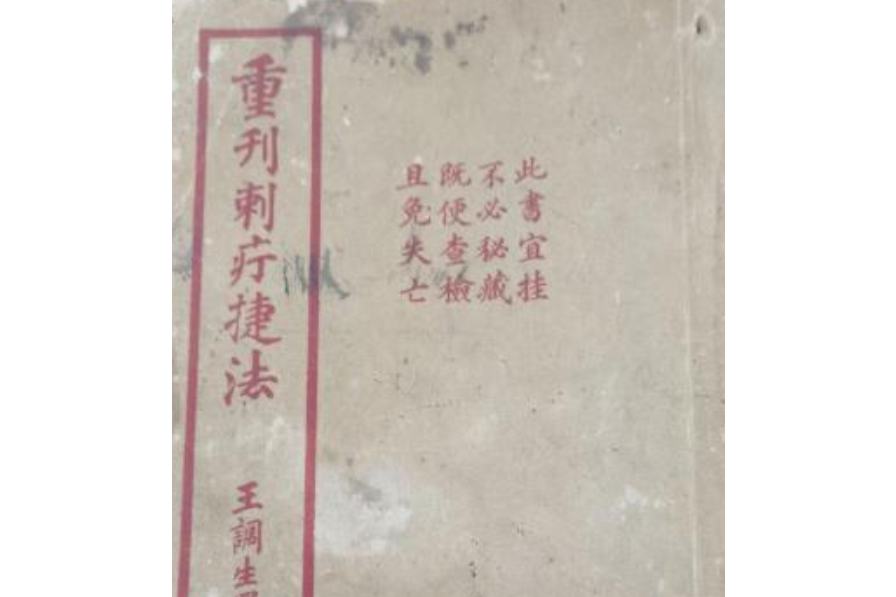 此書宜挂
不必秘藏
既便查檢
且免失亡
重刊刺疔捷法
王調生